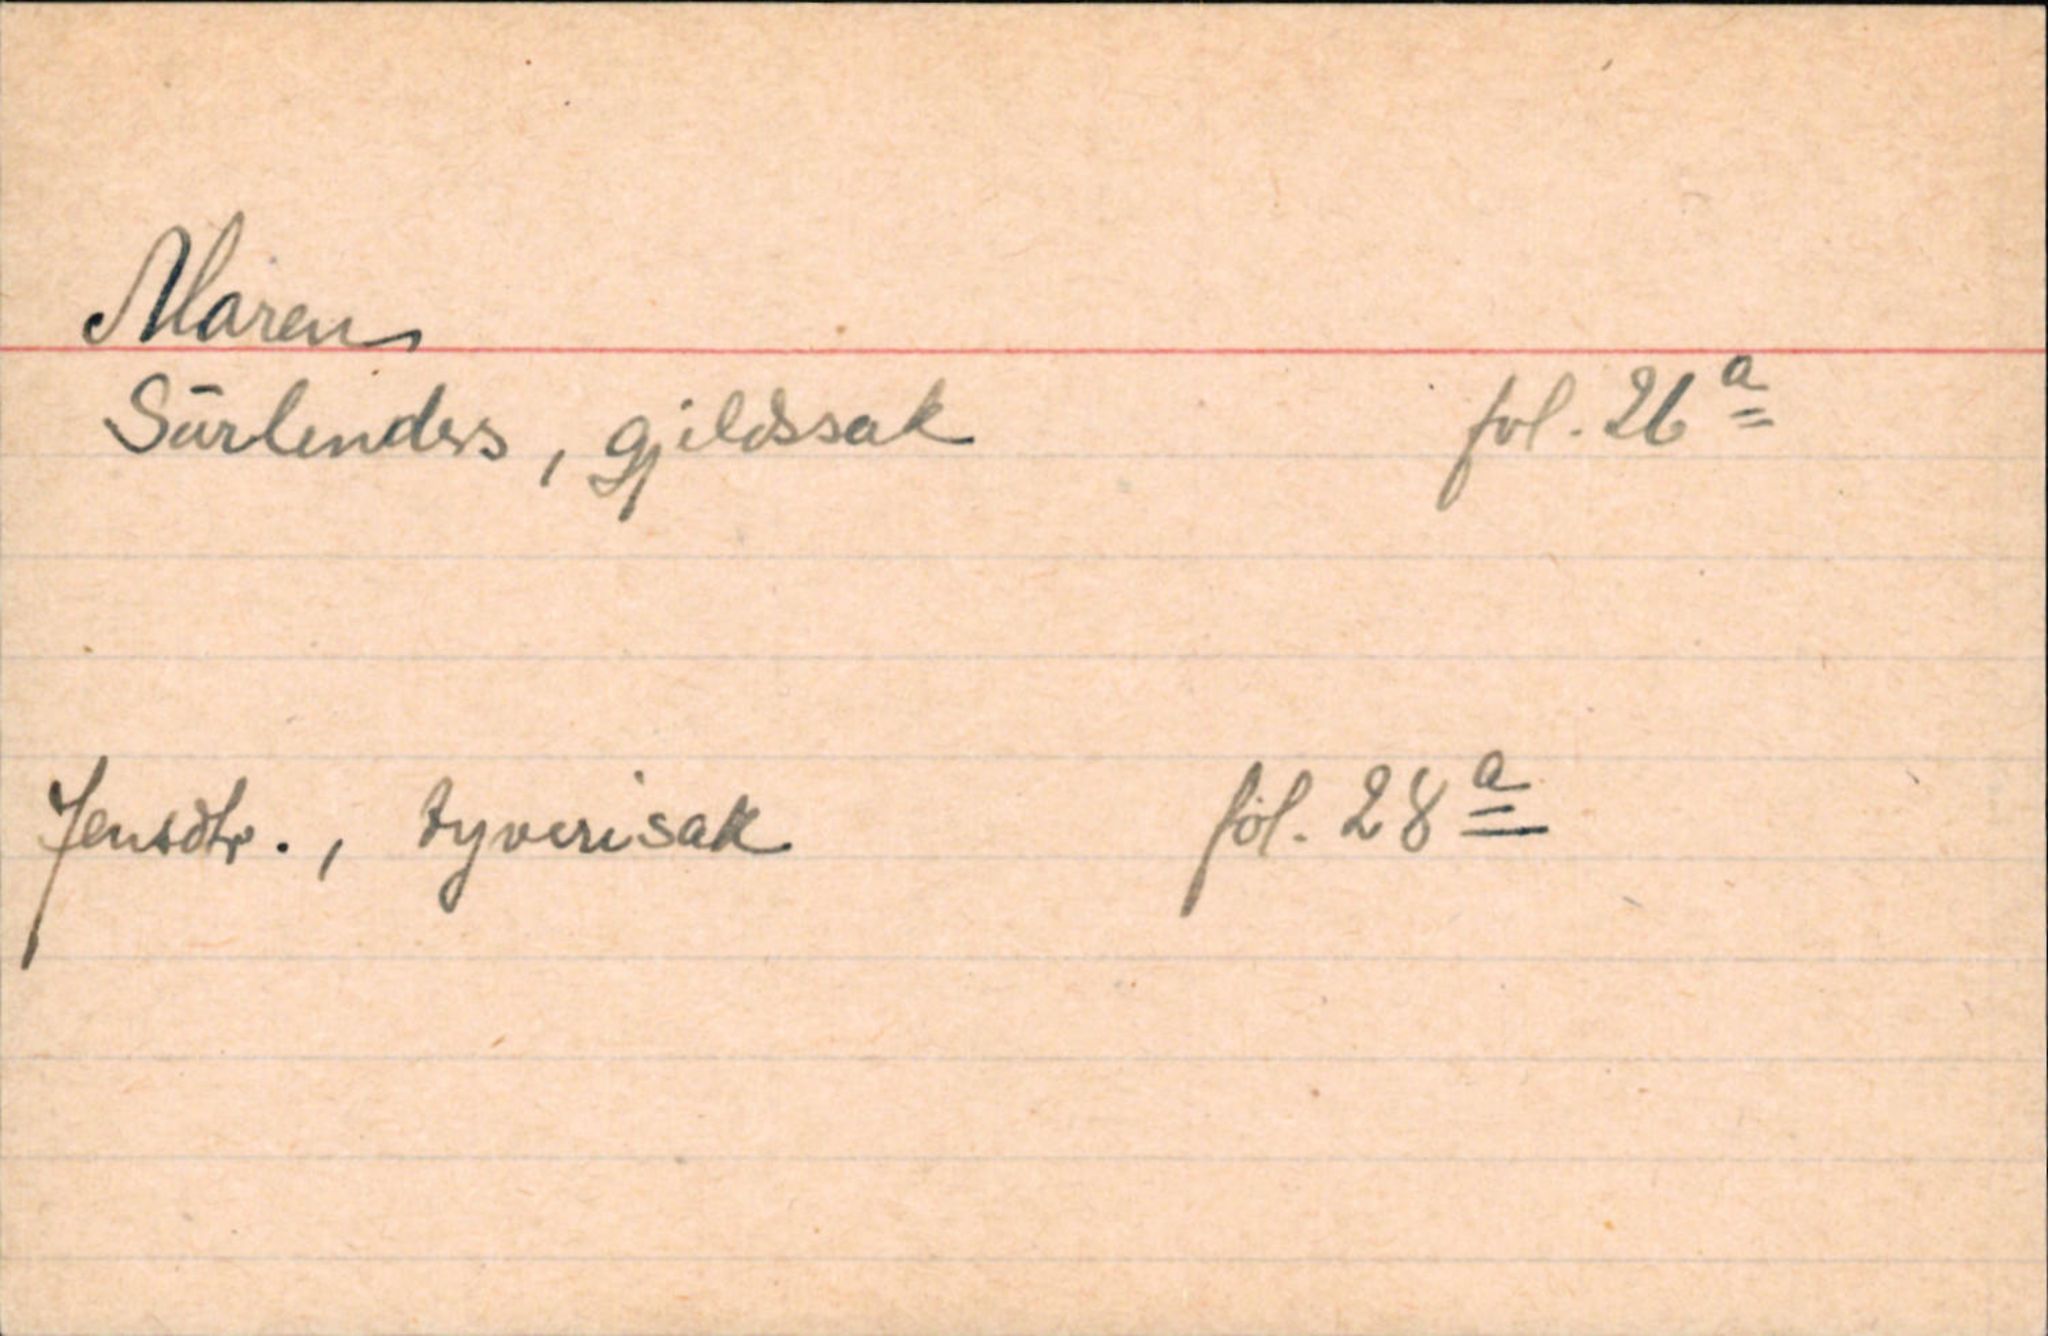 Maren
Sürlenders, gjeldssak fol. 26 a
Jensdtr., tyverisak fol. 28 a